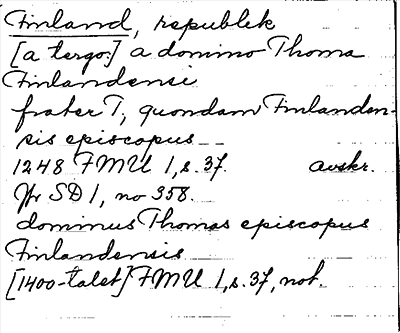 Finland, republek
[a tergo:] a domino Thoma
Finlandensi
frater T, quondam Finlanden-
sis episcopus
1248 FMU 1, s. 37. avskr.
Jfr SD 1, no 358.
dominus Thomas episcopus
Finlandensis
[1400-talet] FMU 1, s. 37, not.